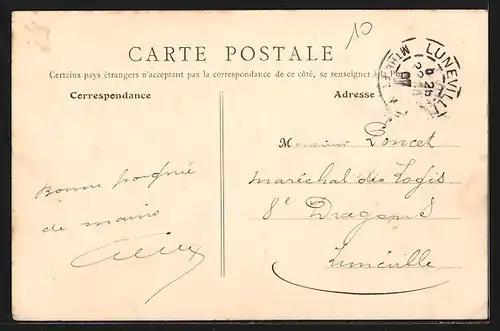 10
CARTE POSTALE
Certains pays étrangers n'acceptant pas la correspondance de ce côté, se renseigner à la Poste
Correspondance
Adresse
LUNEVILLE
Monsieur Poncet
Maréchal des Logis
8e Dragons
Lunéville
Bonne poignée
de mains